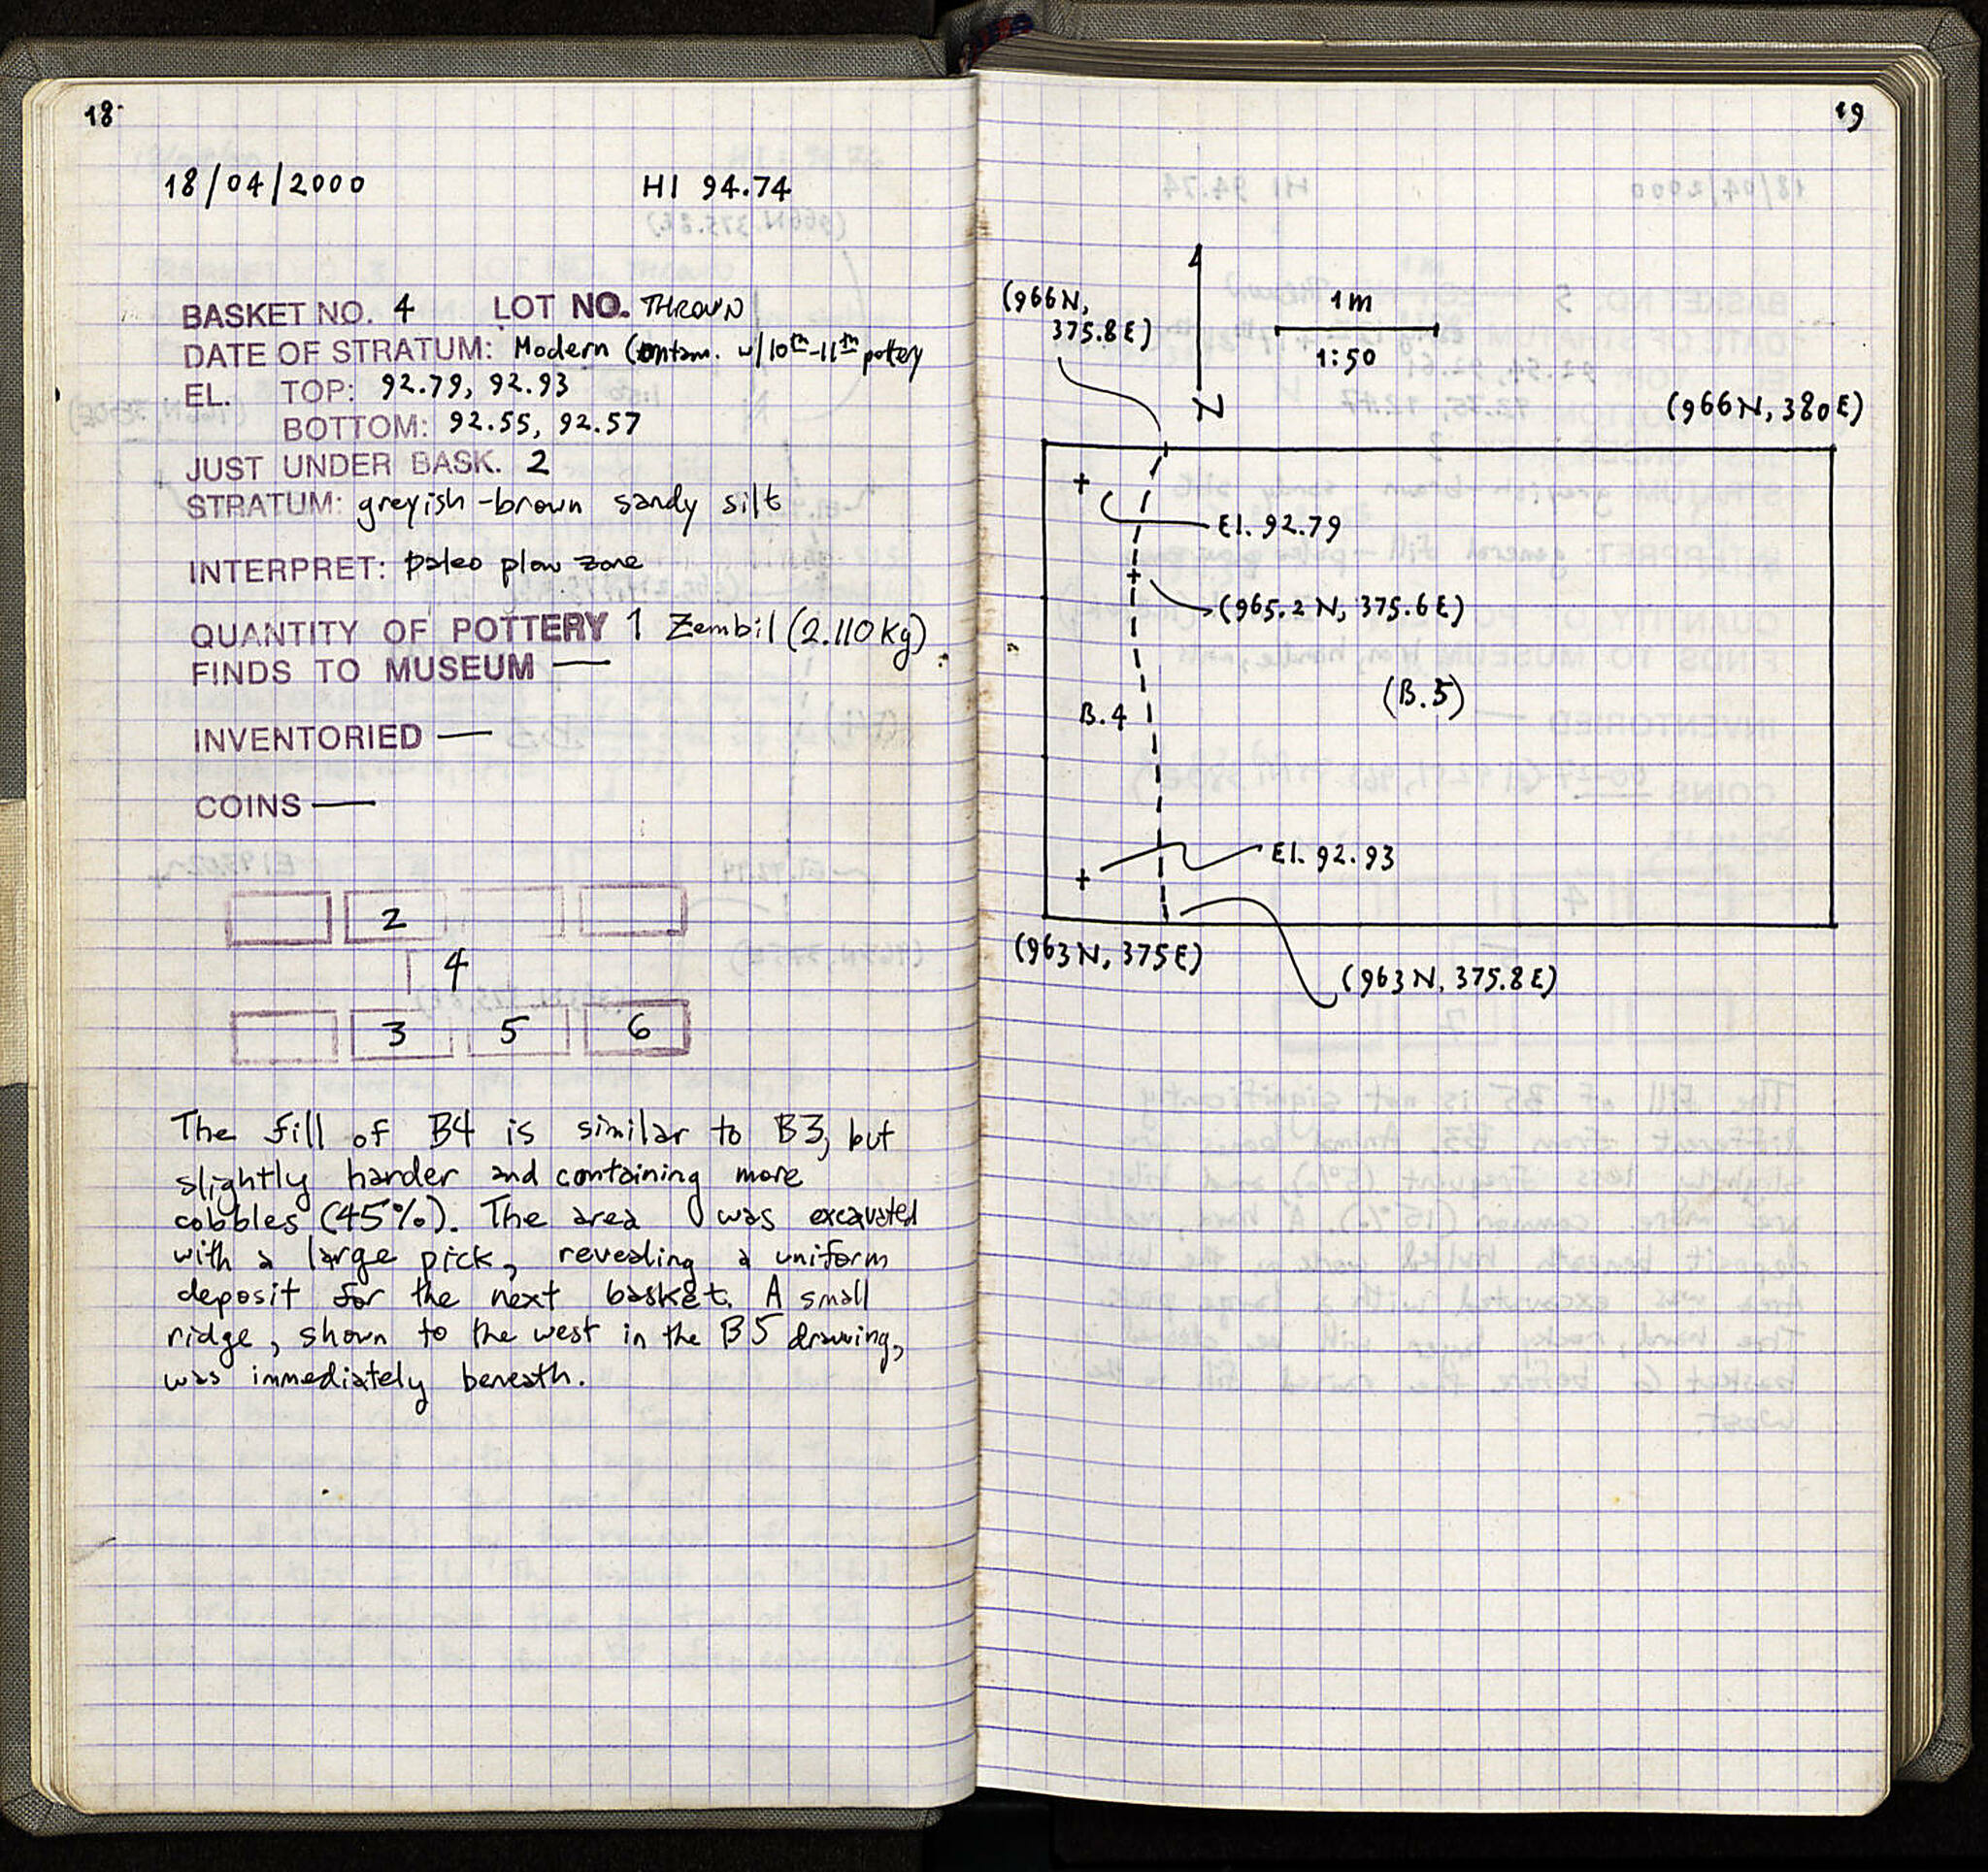 18
18/04/2000 HI 94.74
BASKET NO. 4 LOT NO. THROWN
DATE OF STRATUM: Modern (contam. w/10th-11th pottery
EL. TOP: 92.79, 92.93
BOTTOM: 92.55, 92.57
JUST UNDER BASK. 2
STRATUM: greyish-brown sandy silt
INTERPRET: paleo plow zone
QUANTITY OF POTTERY 1 Zembil (2.110 kg)
FINDS TO MUSEUM —
INVENTORIED —
COINS —
2
4
3 5 6
The fill of B4 is similar to B3, but
slightly harder and containing more
cobbles (45%). The area was excavated
with a large pick, revealing a uniform
deposit for the next basket. A small
ridge, shown to the west in the B5 drawing,
was immediately beneath.
19
(966N,
375.8E)
1m
1:50
N
(966N, 380E)
El. 92.79
(965.2N, 375.6E)
(B.5)
B.4
El. 92.93
(963N, 375E)
(963N, 375.8E)